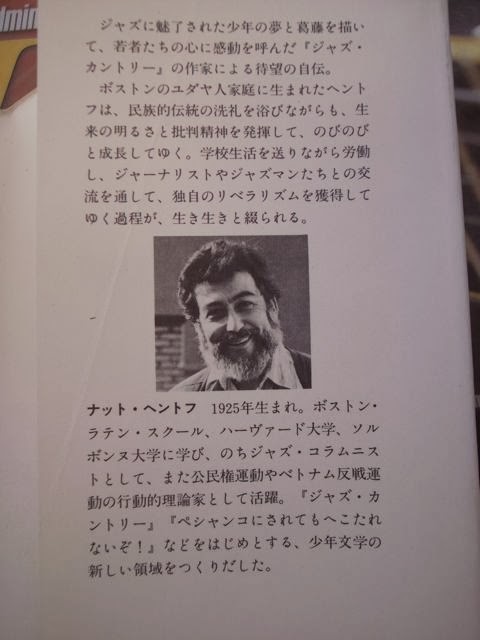 dmin
ジャズに魅了された少年の夢と葛藤を描い
て、若者たちの心に感動を呼んだ『ジャズ・
カントリー』の作家による待望の自伝。
ボストンのユダヤ人家庭に生まれたヘント
フは、民族的伝統の洗礼を浴びながらも、生
来の明るさと批判精神を発揮して、のびのび
と成長してゆく。学校生活を送りながら労働
し、ジャーナリストやジャズマンたちとの交
流を通して、独自のリベラリズムを獲得して
ゆく過程が、生き生きと綴られる。
ナット・ヘントフ 1925年生まれ。ボストン・
ラテン・スクール、ハーヴァード大学、ソル
ボンヌ大学に学び、のちジャズ・コラムニス
トとして、また公民権運動やベトナム反戦運
動の行動的理論家として活躍。『ジャズ・カ
ントリー』『ペシャンコにされてもへこたれ
ないぞ！』などをはじめとする、少年文学の
新しい領域をつくりだした。